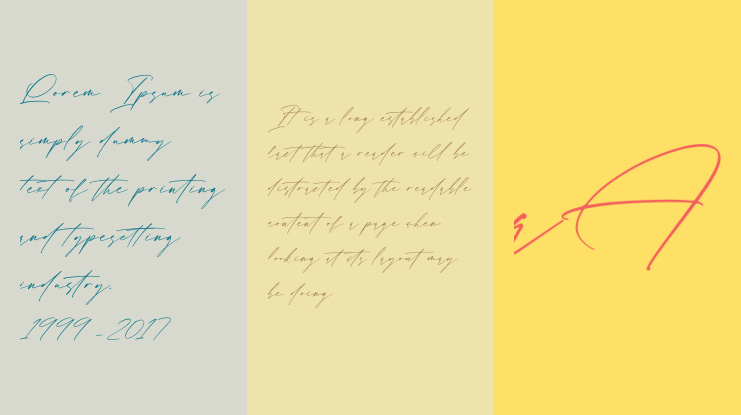 Lorem Ipsum is
simply dummy
text of the printing
and typesetting
industry.
1999 - 2017
It is a long established
fact that a reader will be
distracted by the readable
content of a page when
looking at its layout may
be doing
s A